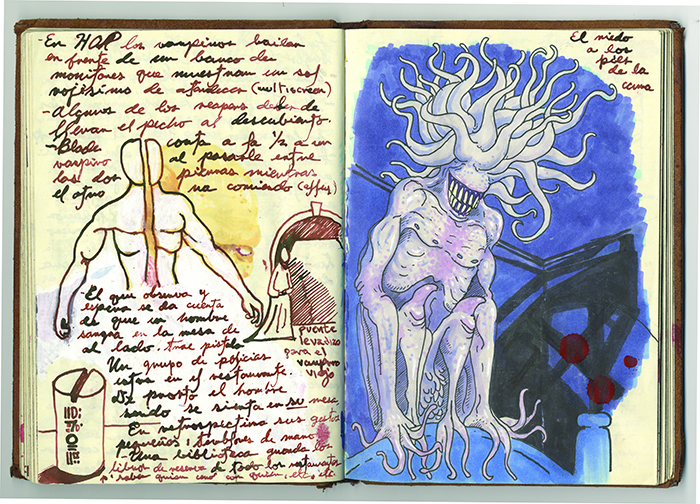 -En HOP los vampiros bailan
en frente de un banco de
monitores que muestran un sol
rojísimo de atardecer (multiscreen)
-Algunos de los reapers deben de
llevan el pecho al descubierto.
-Blade corta a la 1/2 a un
vampiro al pasarle entre
las dos piernas mientras
el otro va corriendo (effex)
-El que observa y
espera se da cuenta
de que un hombre
sangra en la mesa de
al lado. trae pistola
Un grupo de policías
están en el restaurante.
De pronto el hombre
se sienta en su mesa
En retrospectiva sus gestos
pequeños, temblores de mano
-Una biblioteca guarda los
libros de reserva de todo los restaurantes
p/saber quien comió con quién, etc, etc.
puente
levadizo
para el
vampiro
viejo
El miedo
a los
pies
de la
cama